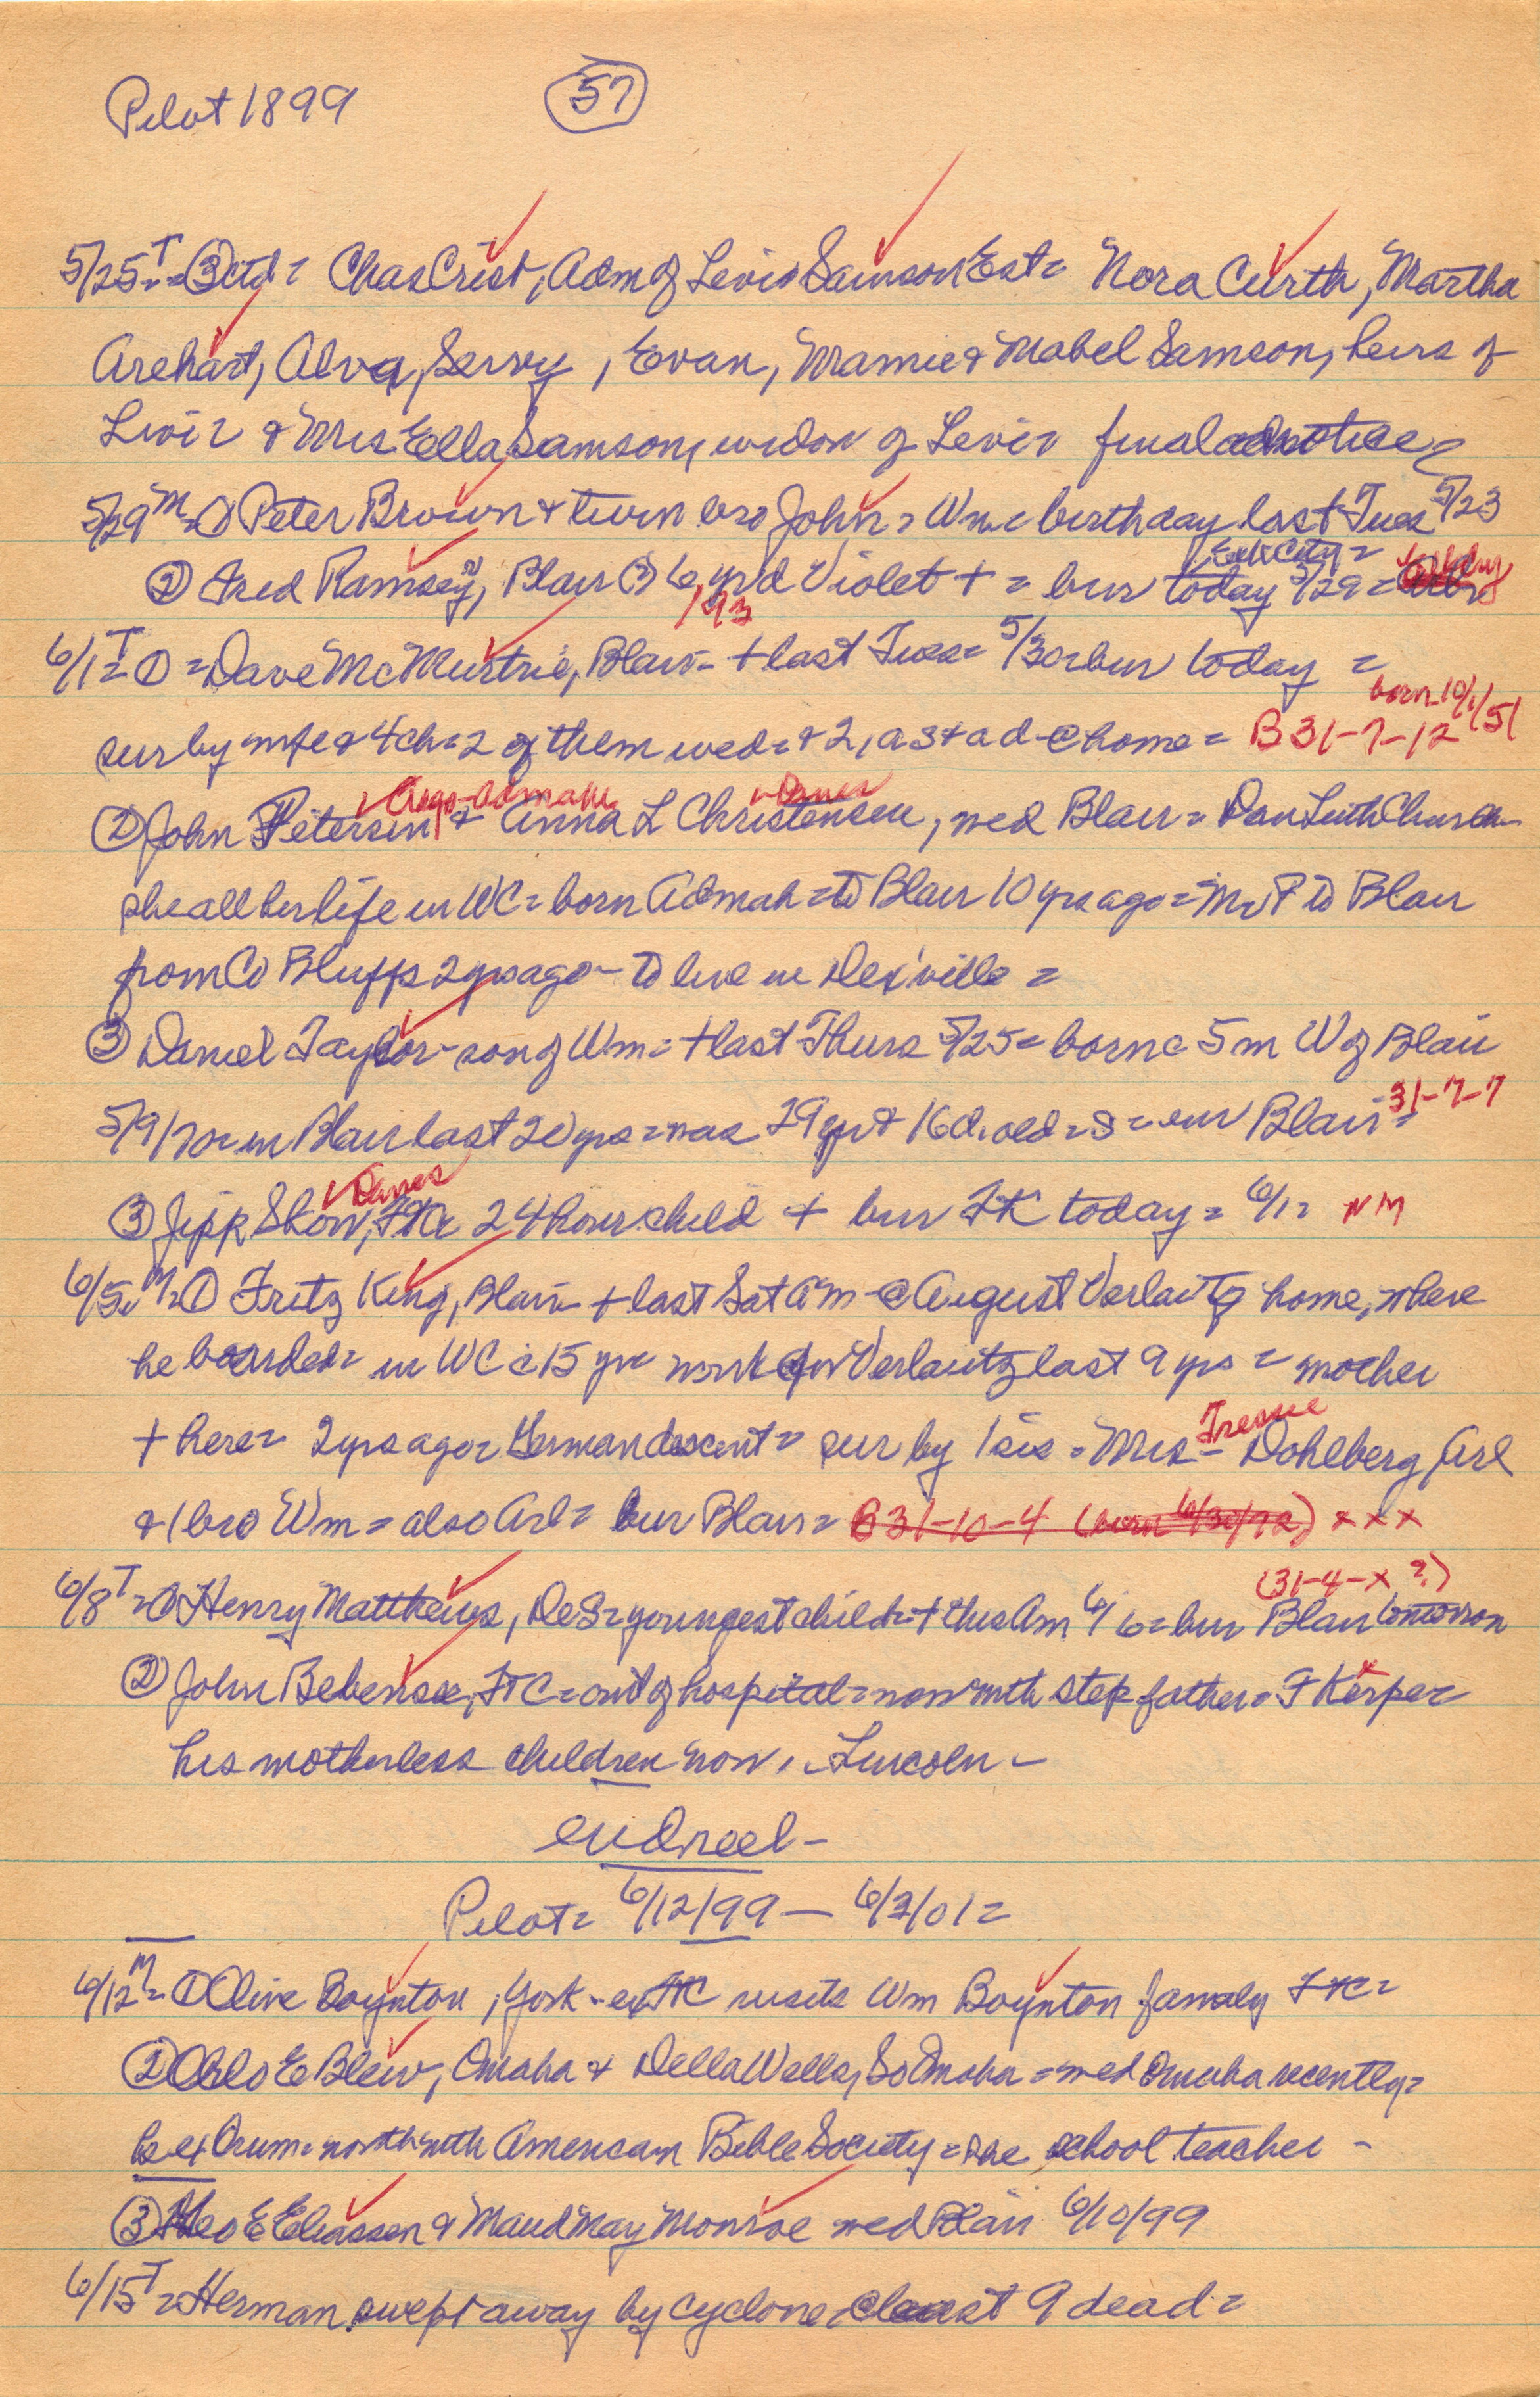 Pilot 1899 57
5/25 T = ③ ctd = Chas Crist, Adm of Levi Samson Est = Nora Curth, Martha
Arehart, Alva, , Evan, Mamie & Mabel Samson, heirs of
Levi = & Mrs Ella Samson, widow of Levi = final notice
5/29 M = ① Peter Brown & twin bro John = Wm = birthday last Tues 5/23
② Fred Ramsey, Blair ③ 6 yr d Violet + = bur today 5/29 =
193
6/1 T = ① = Dave McMurtrie, Blair - + last Tues = 5/30 = bur today =
born 10/1/51
sur by wife & 4 ch = 2 of them wed = & 2, a s & a d @ home = B 31-7-12
Admah Danes
② John Petersen & Anna L Christensen, wed Blair = Dan Luth Church
she all her life in WC = born Admah = to Blair 10 yrs ago = Mr P to Blair
from Co Bluffs 2 yrs ago - to live in Dex'ville =
③ Daniel Taylor - son of Wm = + last Thurs 5/25 = born c 5 m W of Blair
5/9/70 = in Blair last 20 yrs = was 29 yr & 16 d. old = S = bur Blair = 31-7-7
Danes
③ Jepp Skow, FtC 24 hour child + bur FtC today = 6/1 = NM
6/5 M = ① Fritz King, Blair + last Sat Am @ August Verlautz home, where
he boarded = in WC c 15 yr = work for Verlautz last 9 yrs = mother
+ here = 2 yrs ago = German descent = sur by 1 sis = Mrs - Tressie Dohlberg Arl
& 1 bro Wm = also Arl = bur Blair = B 31-10-4 (born 6/30/72) x x x
(31-4-x ?)
6/8 T = ① Henry Matthews, DeS = youngest child = + this Am 6/6 = bur Blair tomorrow
② John Bebensee, FtC = out of hospital = now with step father = F Kerper =
his motherless children now in Lincoln -
end reel -
Pilot = 6/12/99 — 6/3/01 =
6/12 M = ① Olive Boynton, York - ex FtC visits Wm Boynton family FtC =
② E Blew, Omaha & Della Wells, So Omaha = wed Omaha recently =
he ex Orum = with American Bible Society = she school teacher -
③ Theo E Eliassen & Maud May Monroe wed Blair 6/10/99
6/15 T = Herman swept away by cyclone = at least 9 dead =